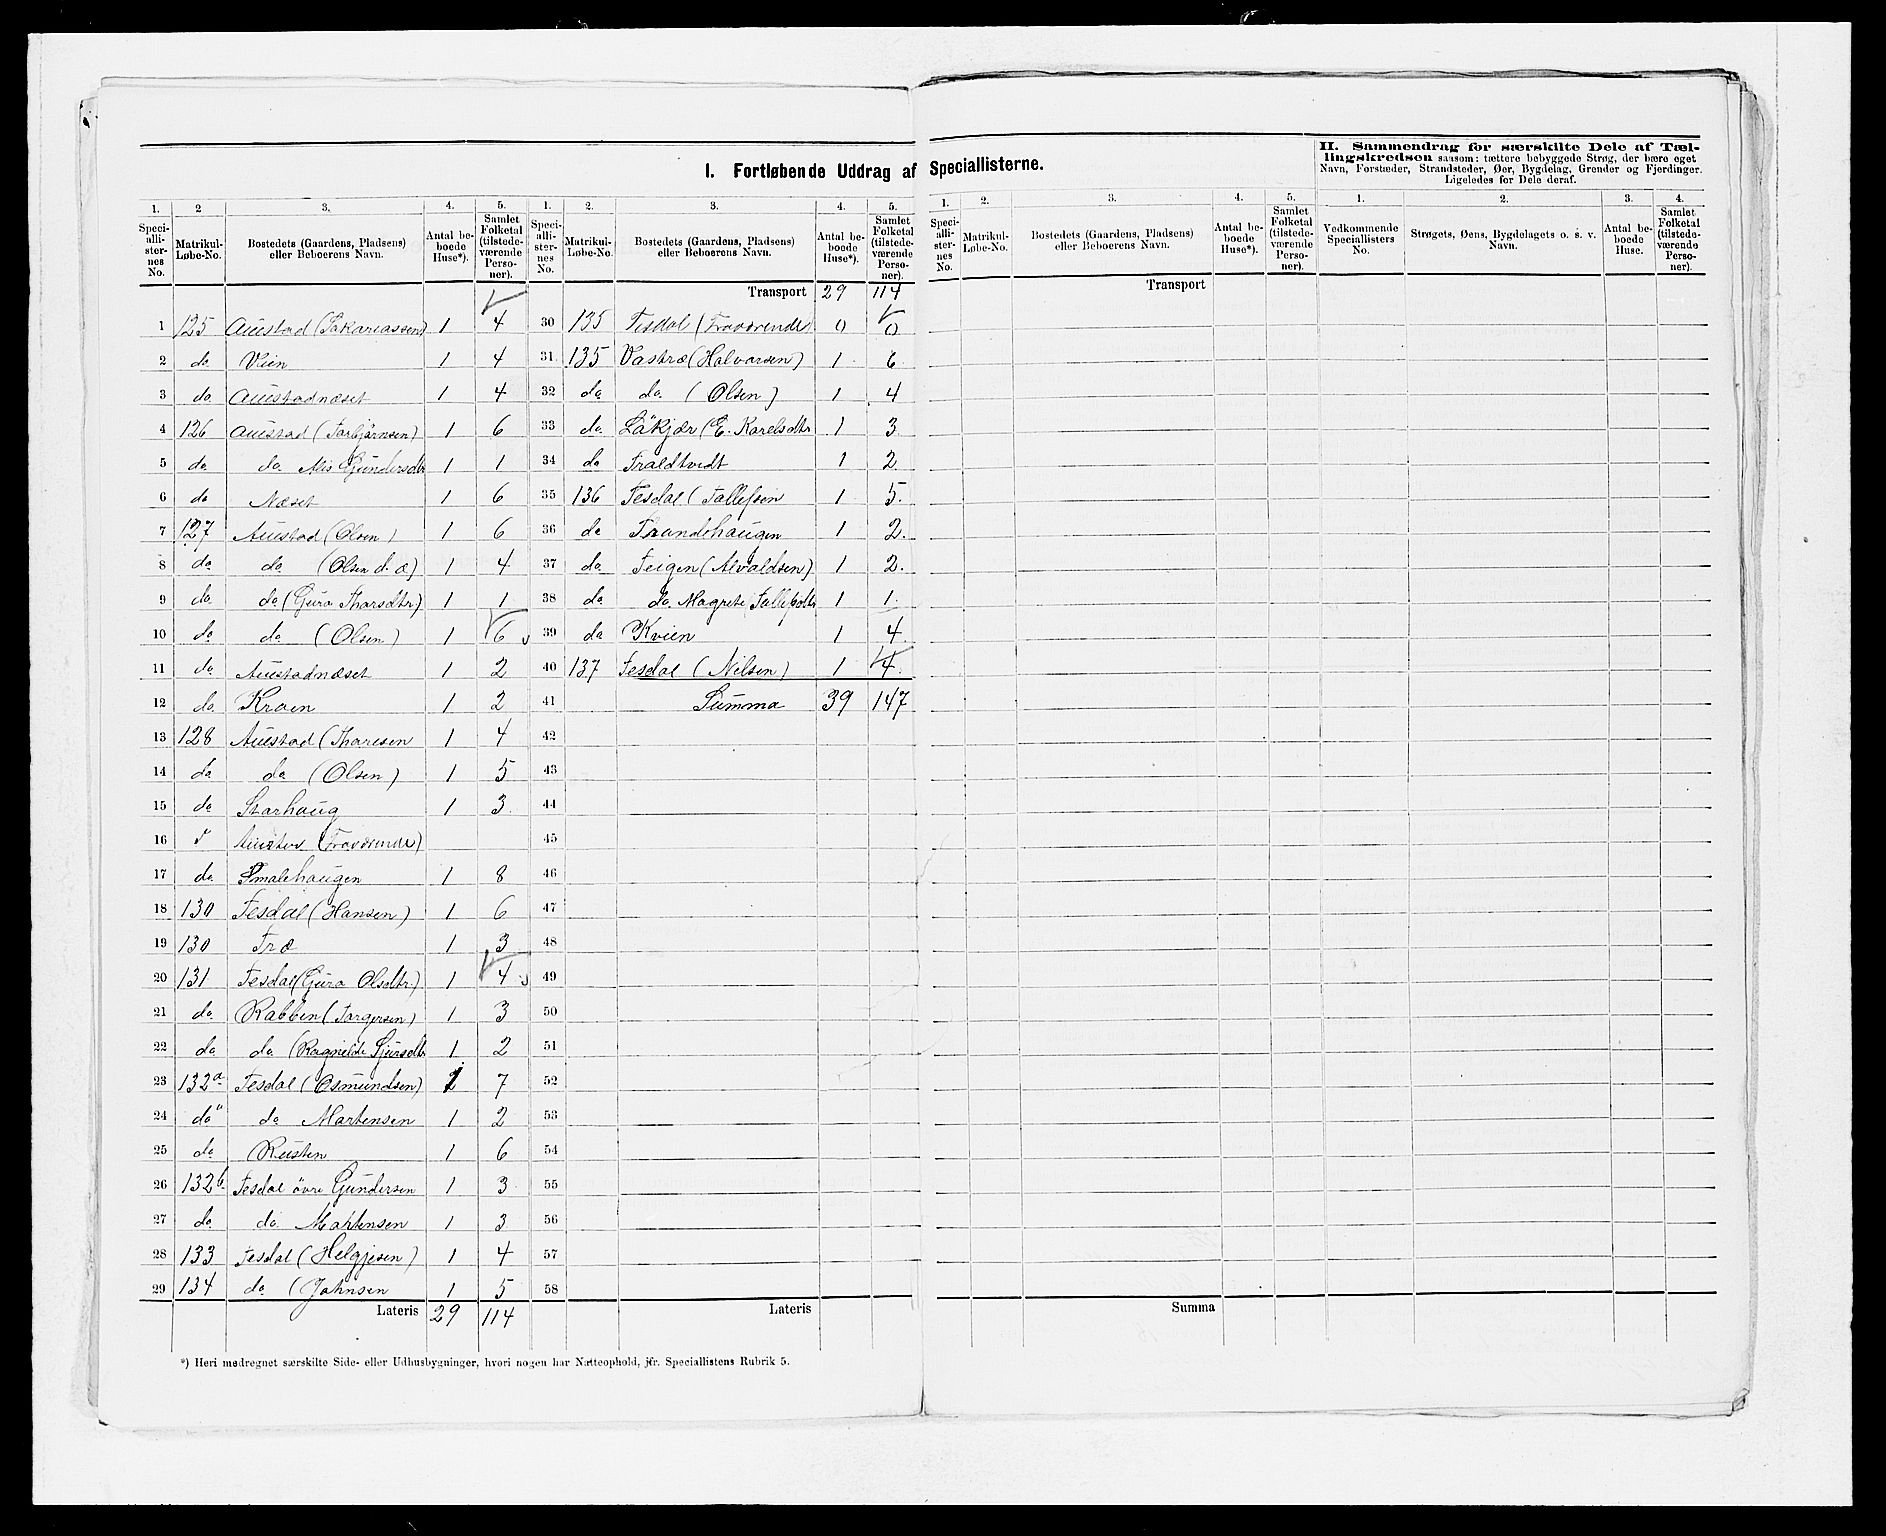 I. Fortløbende Uddrag af Speciallisterne.
II. Sammendrag for særskilte Dele af Tæl-
lingskredsen saasom: tættere bebyggede Strøg, der bære eget
Navn, Forstæder, Strandsteder, Øer, Bygdelag, Grender og Fjerdinger.
Ligeledes for Dele deraf.
1. 2 3. 4. 5. 1. 2. 3. 4. 5. 1. 2. 3. 4. 5. 1. 2. 3. 4.
Speci-alli-ster-nes No. Matrikul-Løbe-No. Bostedets (Gaardens, Pladsens) eller Beboerens Navn. Antal be-boede Huse*). Samlet Folketal (tilstede-værende Perso-ner).
Speci-alli-ster-nes No. Matrikul-Løbe-No. Bostedets (Gaardens, Pladsens) eller Beboerens Navn. Antal be-boede Huse*). Samlet Folketal (tilstede-værende Perso-ner).
Speci-alli-ster-nes No. Matrikul-Løbe-No. Bostedets (Gaardens, Pladsens) eller Beboerens Navn. Antal be-boede Huse*). Samlet Folketal (tilstede-værende Perso-ner).
Vedkommende Speciallisters No. Strøgets, Øens, Bygdelagets o. s. v. Navn. Antal be-boede Huse. Samlet Folketal (tilstede-værende Perso-ner).
1 125 Austad (Sakariassen) 1 4
2 do Veien 1 4
3 do Austadnæset 1 4
4 126 Austad (Torbjørnsen) 1 6
5 do do Alis Gundersdtr 1 1
6 do Næset 1 6
7 127 Austad (Olsen) 1 6
8 do do (Olsen d. æ) 1 4
9 do do (Guro Thorsdtr) 1 1
10 do do (Olsen) 1 6
11 do Austadnæset 1 2
12 do Kroen 1 2
13 128 Austad (Thoresen 1 4
14 do do (Olsen) 1 5
15 do Storhaug 1 3
16 (Fraværende)
17 do Smalehaugen 1 8
18 130 Tesdal (Hansen) 1 6
19 130 Træ 1 3
20 131 Tesdal (Guro Olsdtr) 1 4
21 do Rabben (Torgersen) 1 3
22 do do (Ragnilde Sjursdtr 1 2
23 132a Tesdal (Osmundsen) 1 7
24 do" do Martensen 1 2
25 do Rusten 1 6
26 132b Tesdal övre Gundersen 1 3
27 do do Martensen 1 3
28 133 Tesdal (Helgjesen) 1 4
29 134 do (Johnsen 1 5
Lateris 29 114
Transport 29 114
30 135 Tesdal (Fraværende) 0 0
31 135 Vastræ (Halvorsen) 1 6
32 do do (Olsen) 1 4
33 do Läkjær (E. Karelsdtr 1 3
34 do Traldtvedt 1 2
35 136 Tesdal (Tollefsen 1 5.
36 do Strandehaugen 1 2.
37 do Teigen (Alvaldsen) 1 2.
38 do do Magrete Tollefsdtr 1 1.
39 do Kvien 1 4.
40 137 Tesdal (Nilsen) 1 4.
41 Summa 39 147
42
43
44
45
46
47
48
49
50
51
52
53
54
55
56
57
58
Lateris
Transport
Summa
*) Heri medregnet særskilte Side- eller Udhusbygninger, hvori nogen har Natteophold, jfr. Speciallistens Rubrik 5.